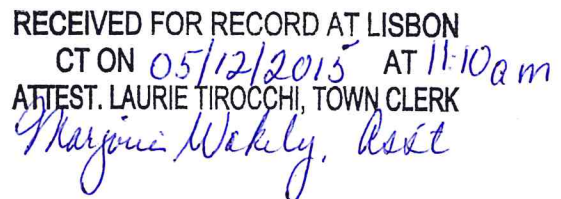 RECEIVED FOR RECORD AT LISBON
CT ON 05/12/2015 AT 11:10am
ATTEST. LAURIE TIROCCHI, TOWN CLERK
Marjorie Wakely, Asst